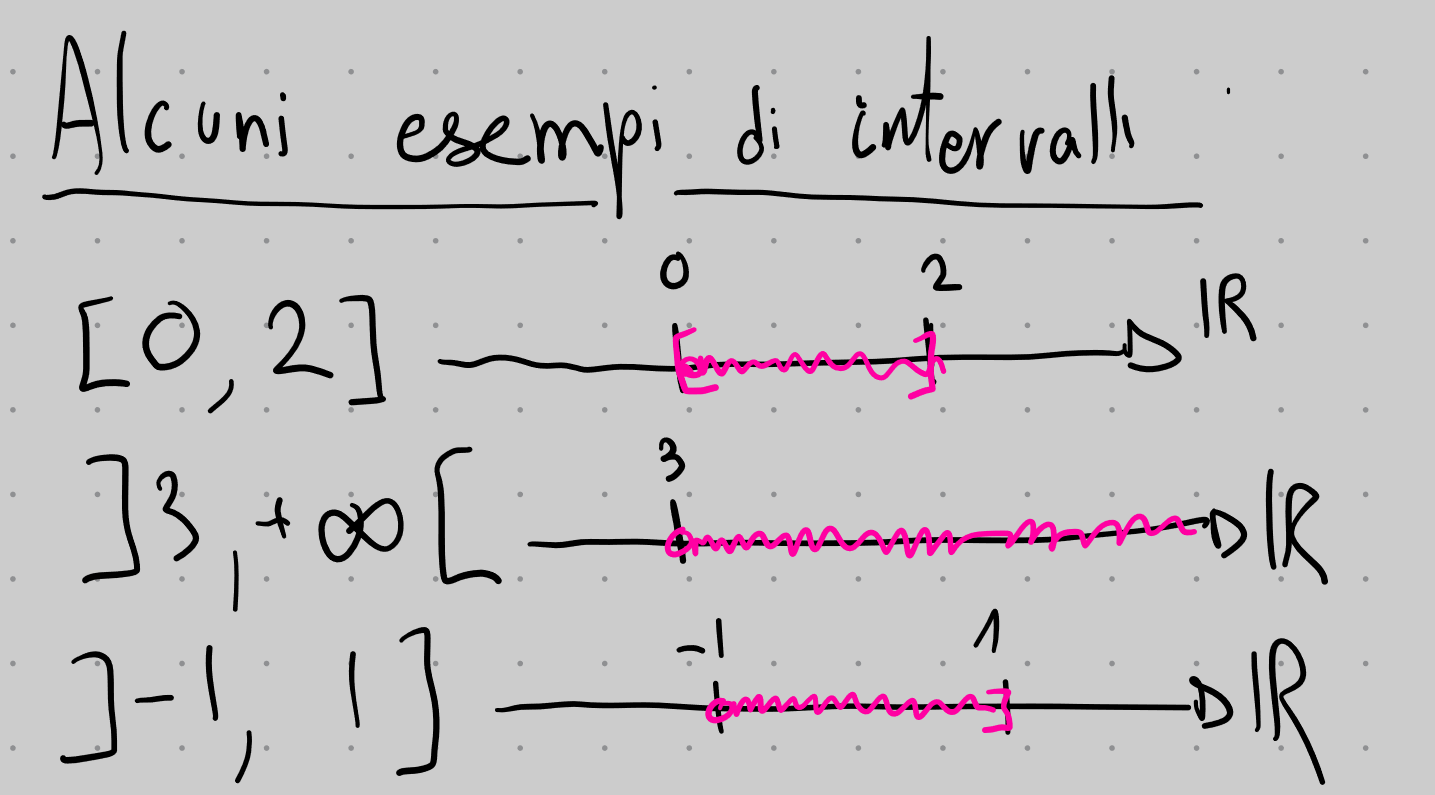 Alcuni esempi di intervalli
[0, 2] 0 2 ℝ
]3, +∞[ 3 ℝ
]-1, 1] -1 1 ℝ